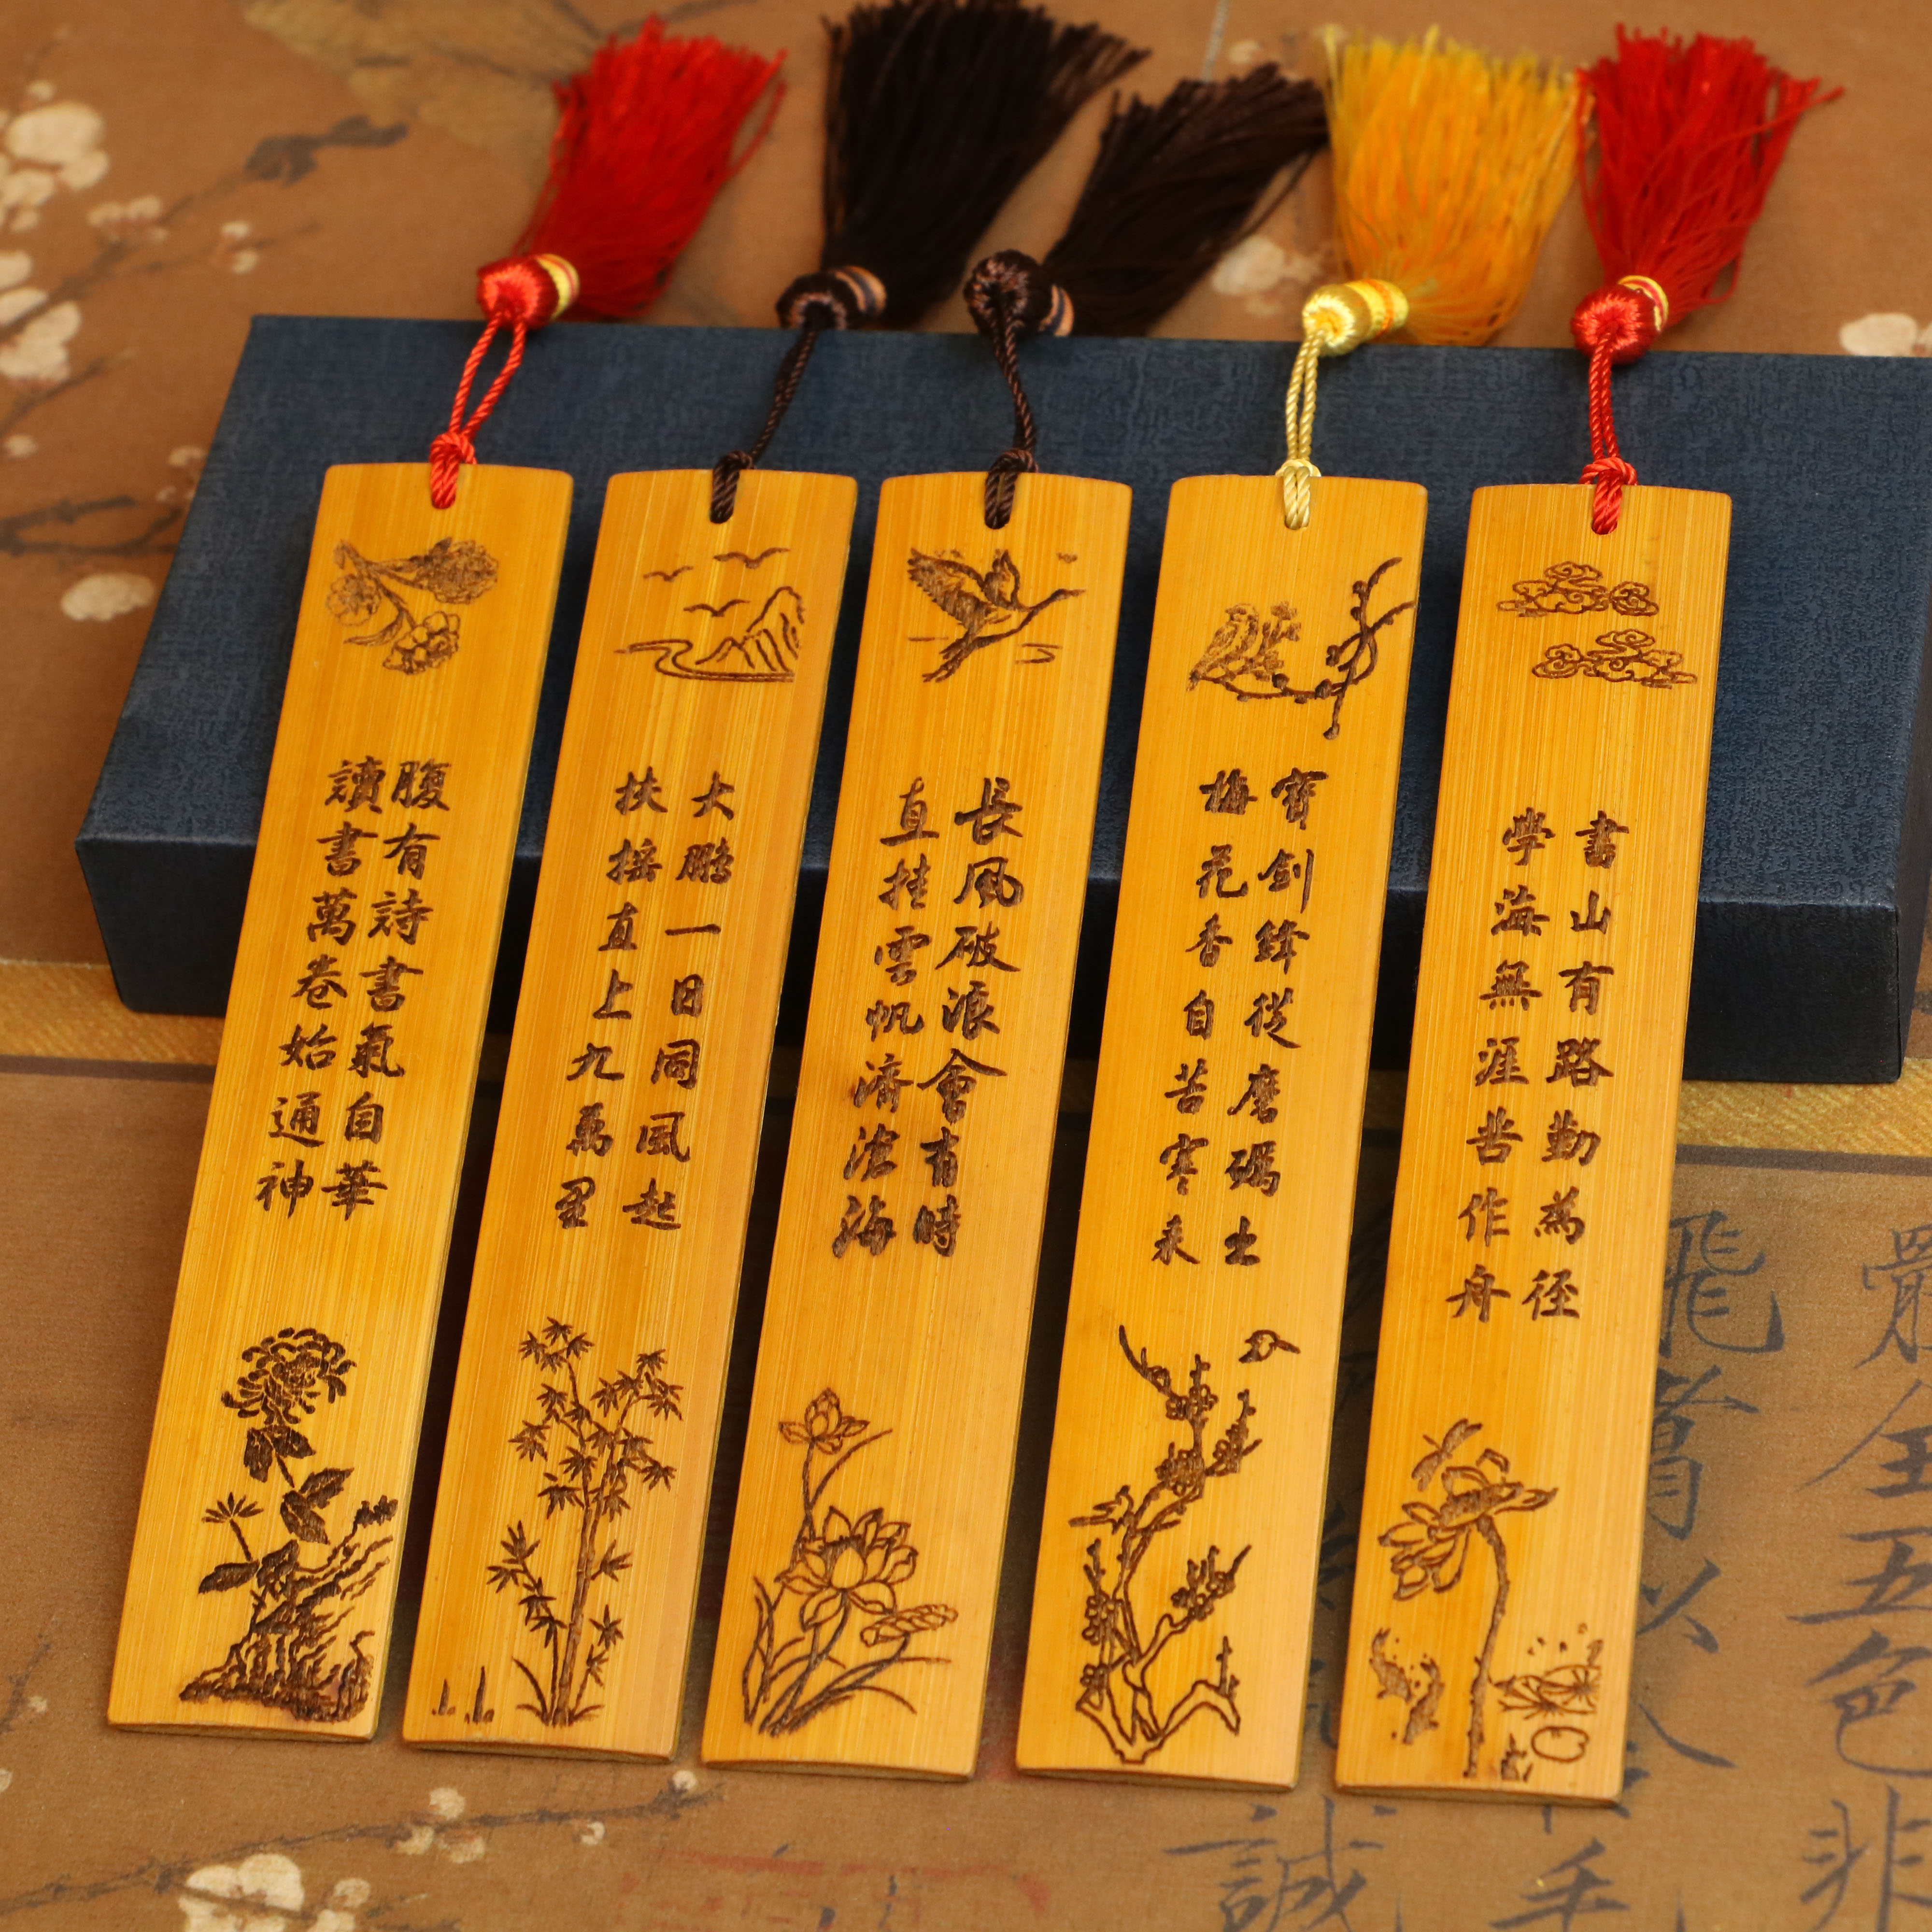 腹有詩書氣自華
讀書萬卷始通神
大鵬一日同風起
扶搖直上九萬里
長風破浪會有時
直挂雲帆濟滄海
寶劍鋒從磨礪出
梅花香自苦寒來
書山有路勤為徑
學海無涯苦作舟
全五色非
以
誠
手